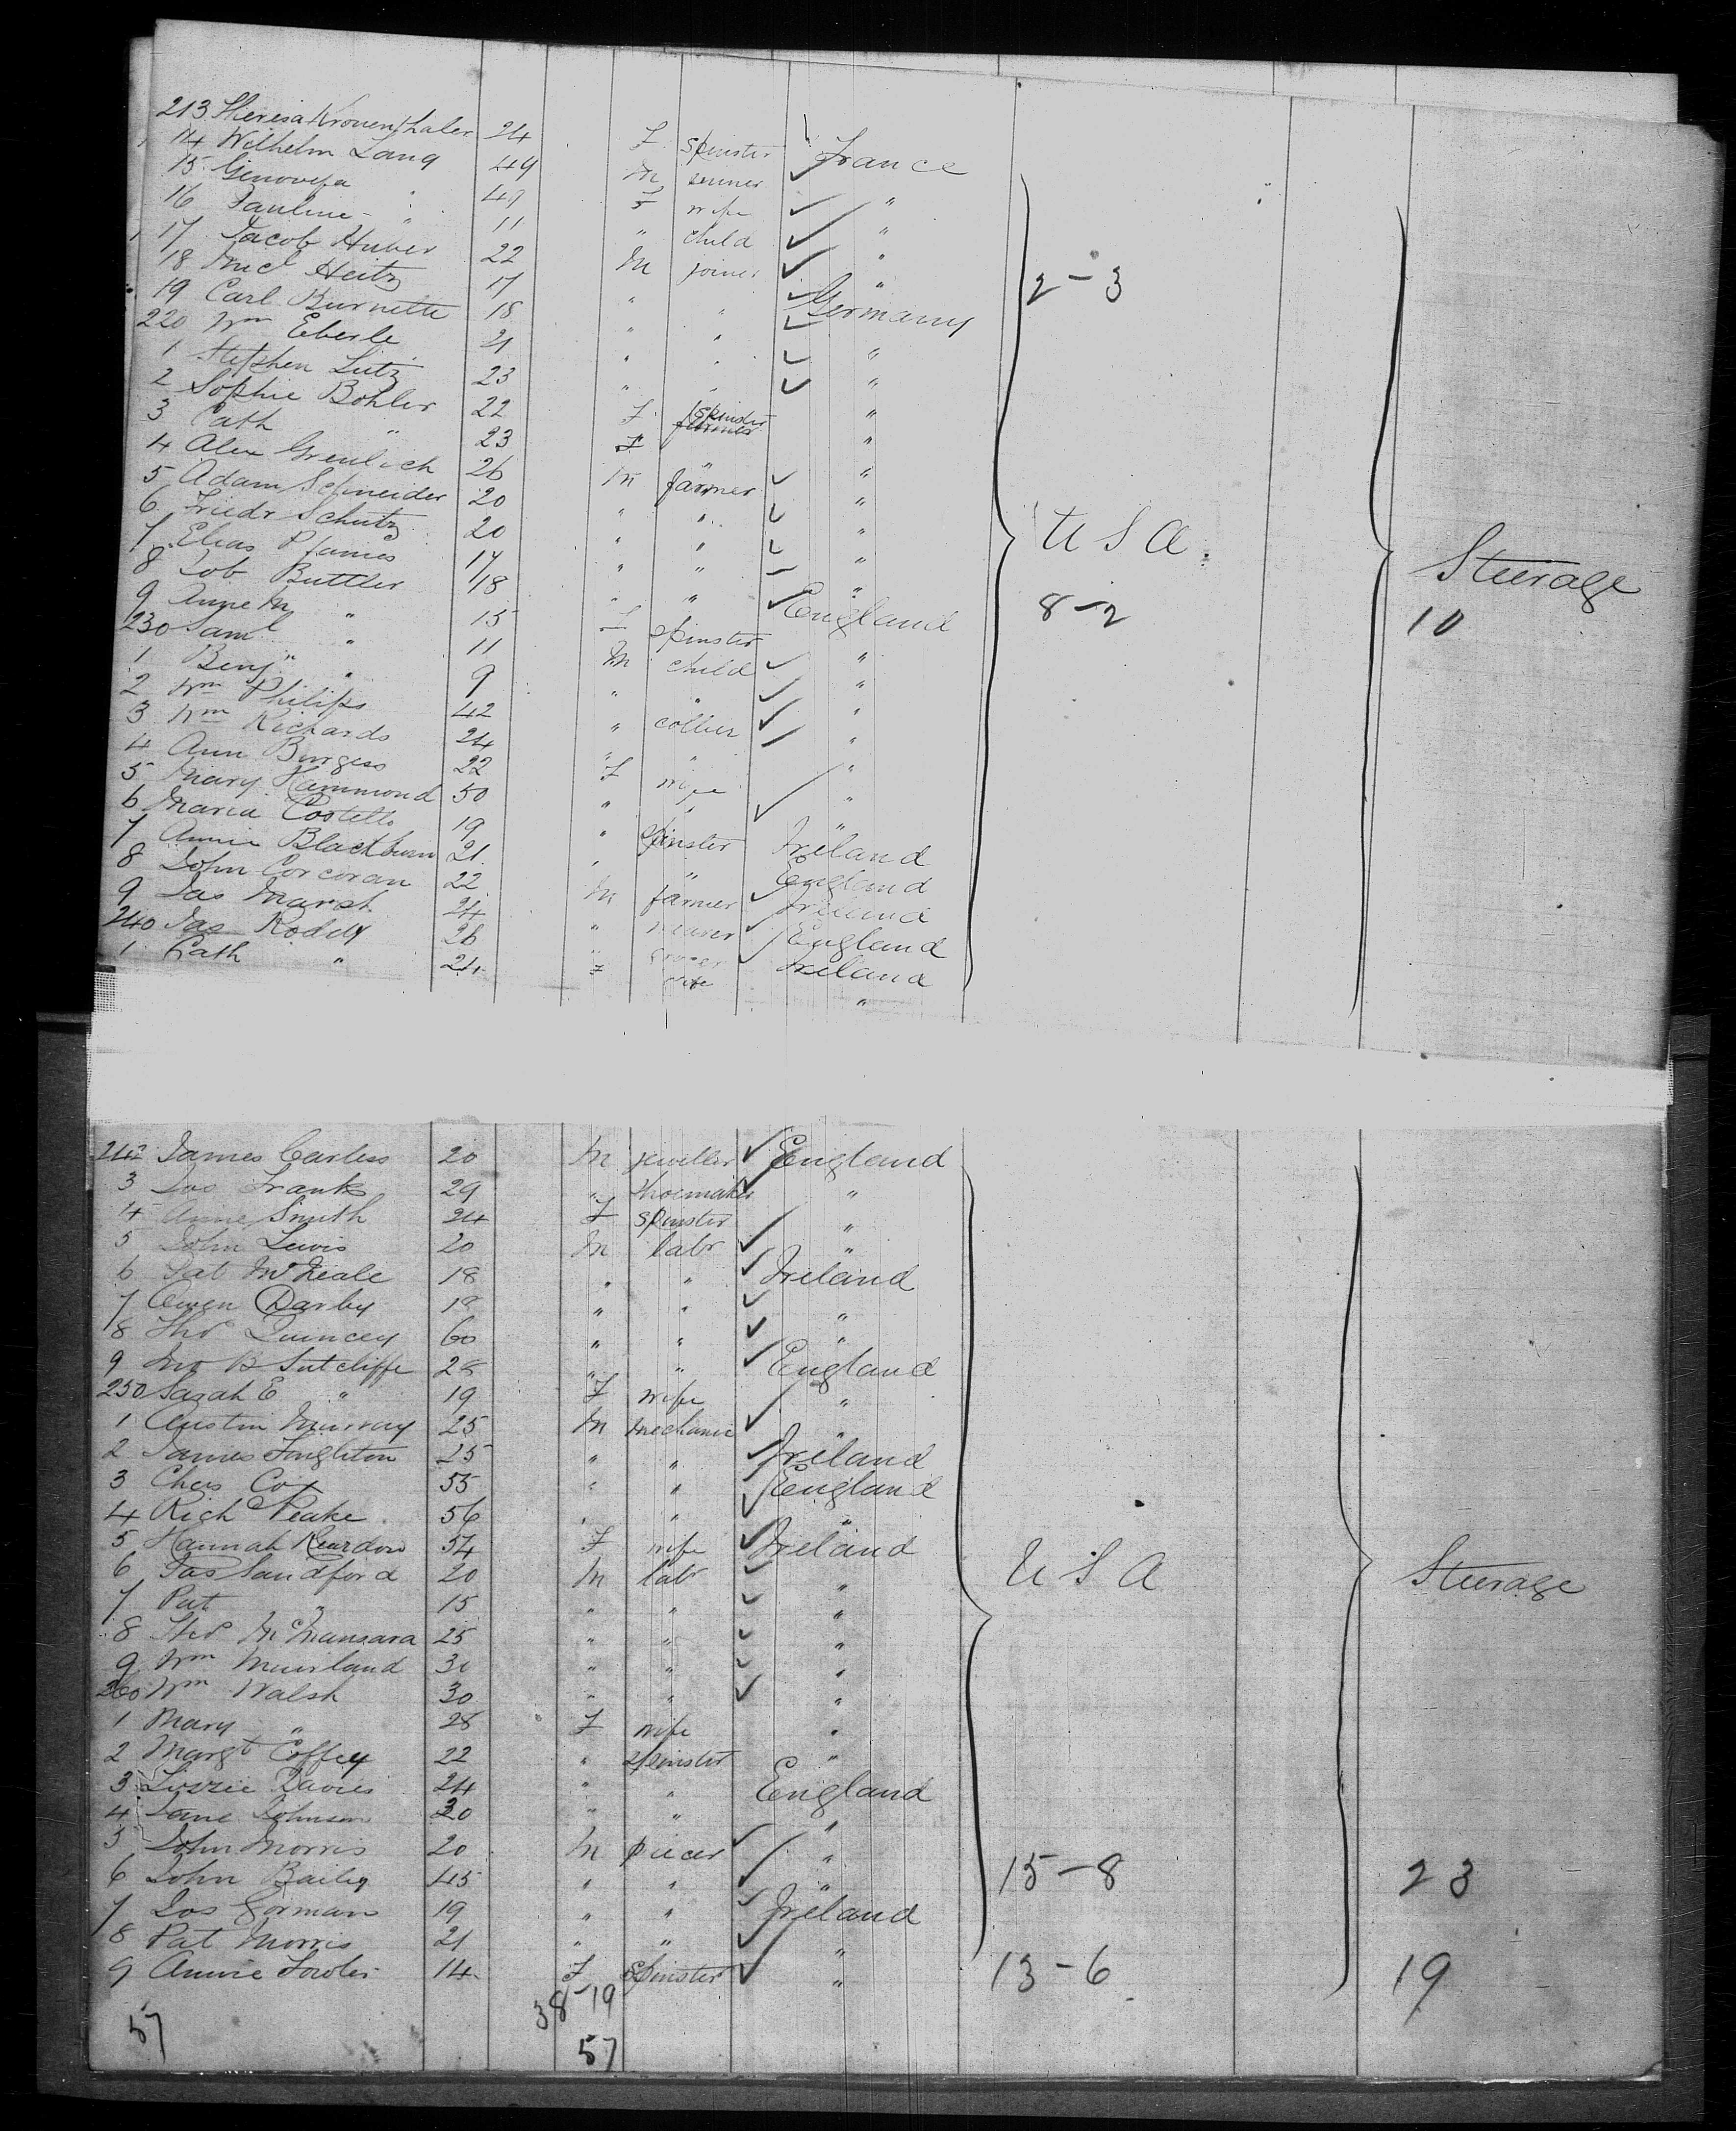 213 Theresa Kronenthaler 24 F. spinster France
14 Wilhelm Lang 49 M "
15 Genovefa " 49 F wife "
16 Pauline " 11 " child "
17 Jacob Huber 22 M joiner "
18 Micl Heitz 17 " " Germany
19 Carl Burnette 18 " " "
220 Wm Eberle 21 " " "
1 Stephen Lutz 23 " " "
2 Sophie Bohler 22 F. spinster "
3 Cath " 23 F " "
4 Alex Greulich 26 M farmer "
5 Adam Schneider 20 " " "
6 Friedr Schutz 20 " " "
7 Elias 17 " " "
8 Job Buttler 18 " " England
9 Anne M " 15 F spinster "
230 Saml " 11 M child "
1 Benj " 9 " " "
2 Wm Philips 42 " collier "
3 Wm Richards 24 " " "
4 Ann Burgess 22 F wife "
5 Mary Hammond 50 " " "
6 Maria Costello 19 " spinster Ireland
7 Annie Blackburn 21 " " England
8 John Corcoran 22 M farmer Ireland
9 Jas Marsh 24 " weaver England
240 Jas Roddy 26 " grocer Ireland
1 Cath " 24 F wife "
2-3
U S A.
8-2
Steerage
10
242 James Carless 20 M jeweller England
3 Jos Franks 29 " shoemaker "
4 Anne Smith 24 F spinster "
5 John Lewis 20 M labr "
6 Pat McNeale 18 " " Ireland
7 Owen Darby 18 " " "
8 Thos Quincey 60 " " "
9 Jno B Sutcliffe 28 " " England
250 Sarah E " 19 F wife "
1 Austin Murray 25 M mechanic "
2 James Singleton 25 " " Ireland
3 Chas Cox 55 " " England
4 Rich Peake 56 " " "
5 Hannah Reardon 54 F wife Ireland
6 Jas Sandford 20 M labr "
7 Pat " 15 " " "
8 Thos McMansara 25 " " "
9 Wm Muirland 30 " " "
260 Wm Walsh 30 " " "
1 Mary " 28 F wife "
2 Margt Coffey 22 " spinster "
3 Lizzie Davies 24 " " England
4 Jane Johnson 20 " " "
5 John Morris 20 M piecer "
6 John Bailey 45 " " "
7 Jos Gorman 19 " " Ireland
8 Pat Morris 21 " " "
9 Annie Fowler 14 F Spinster "
U S A
Steerage
15-8 23
13-6 19
38-19
57 57